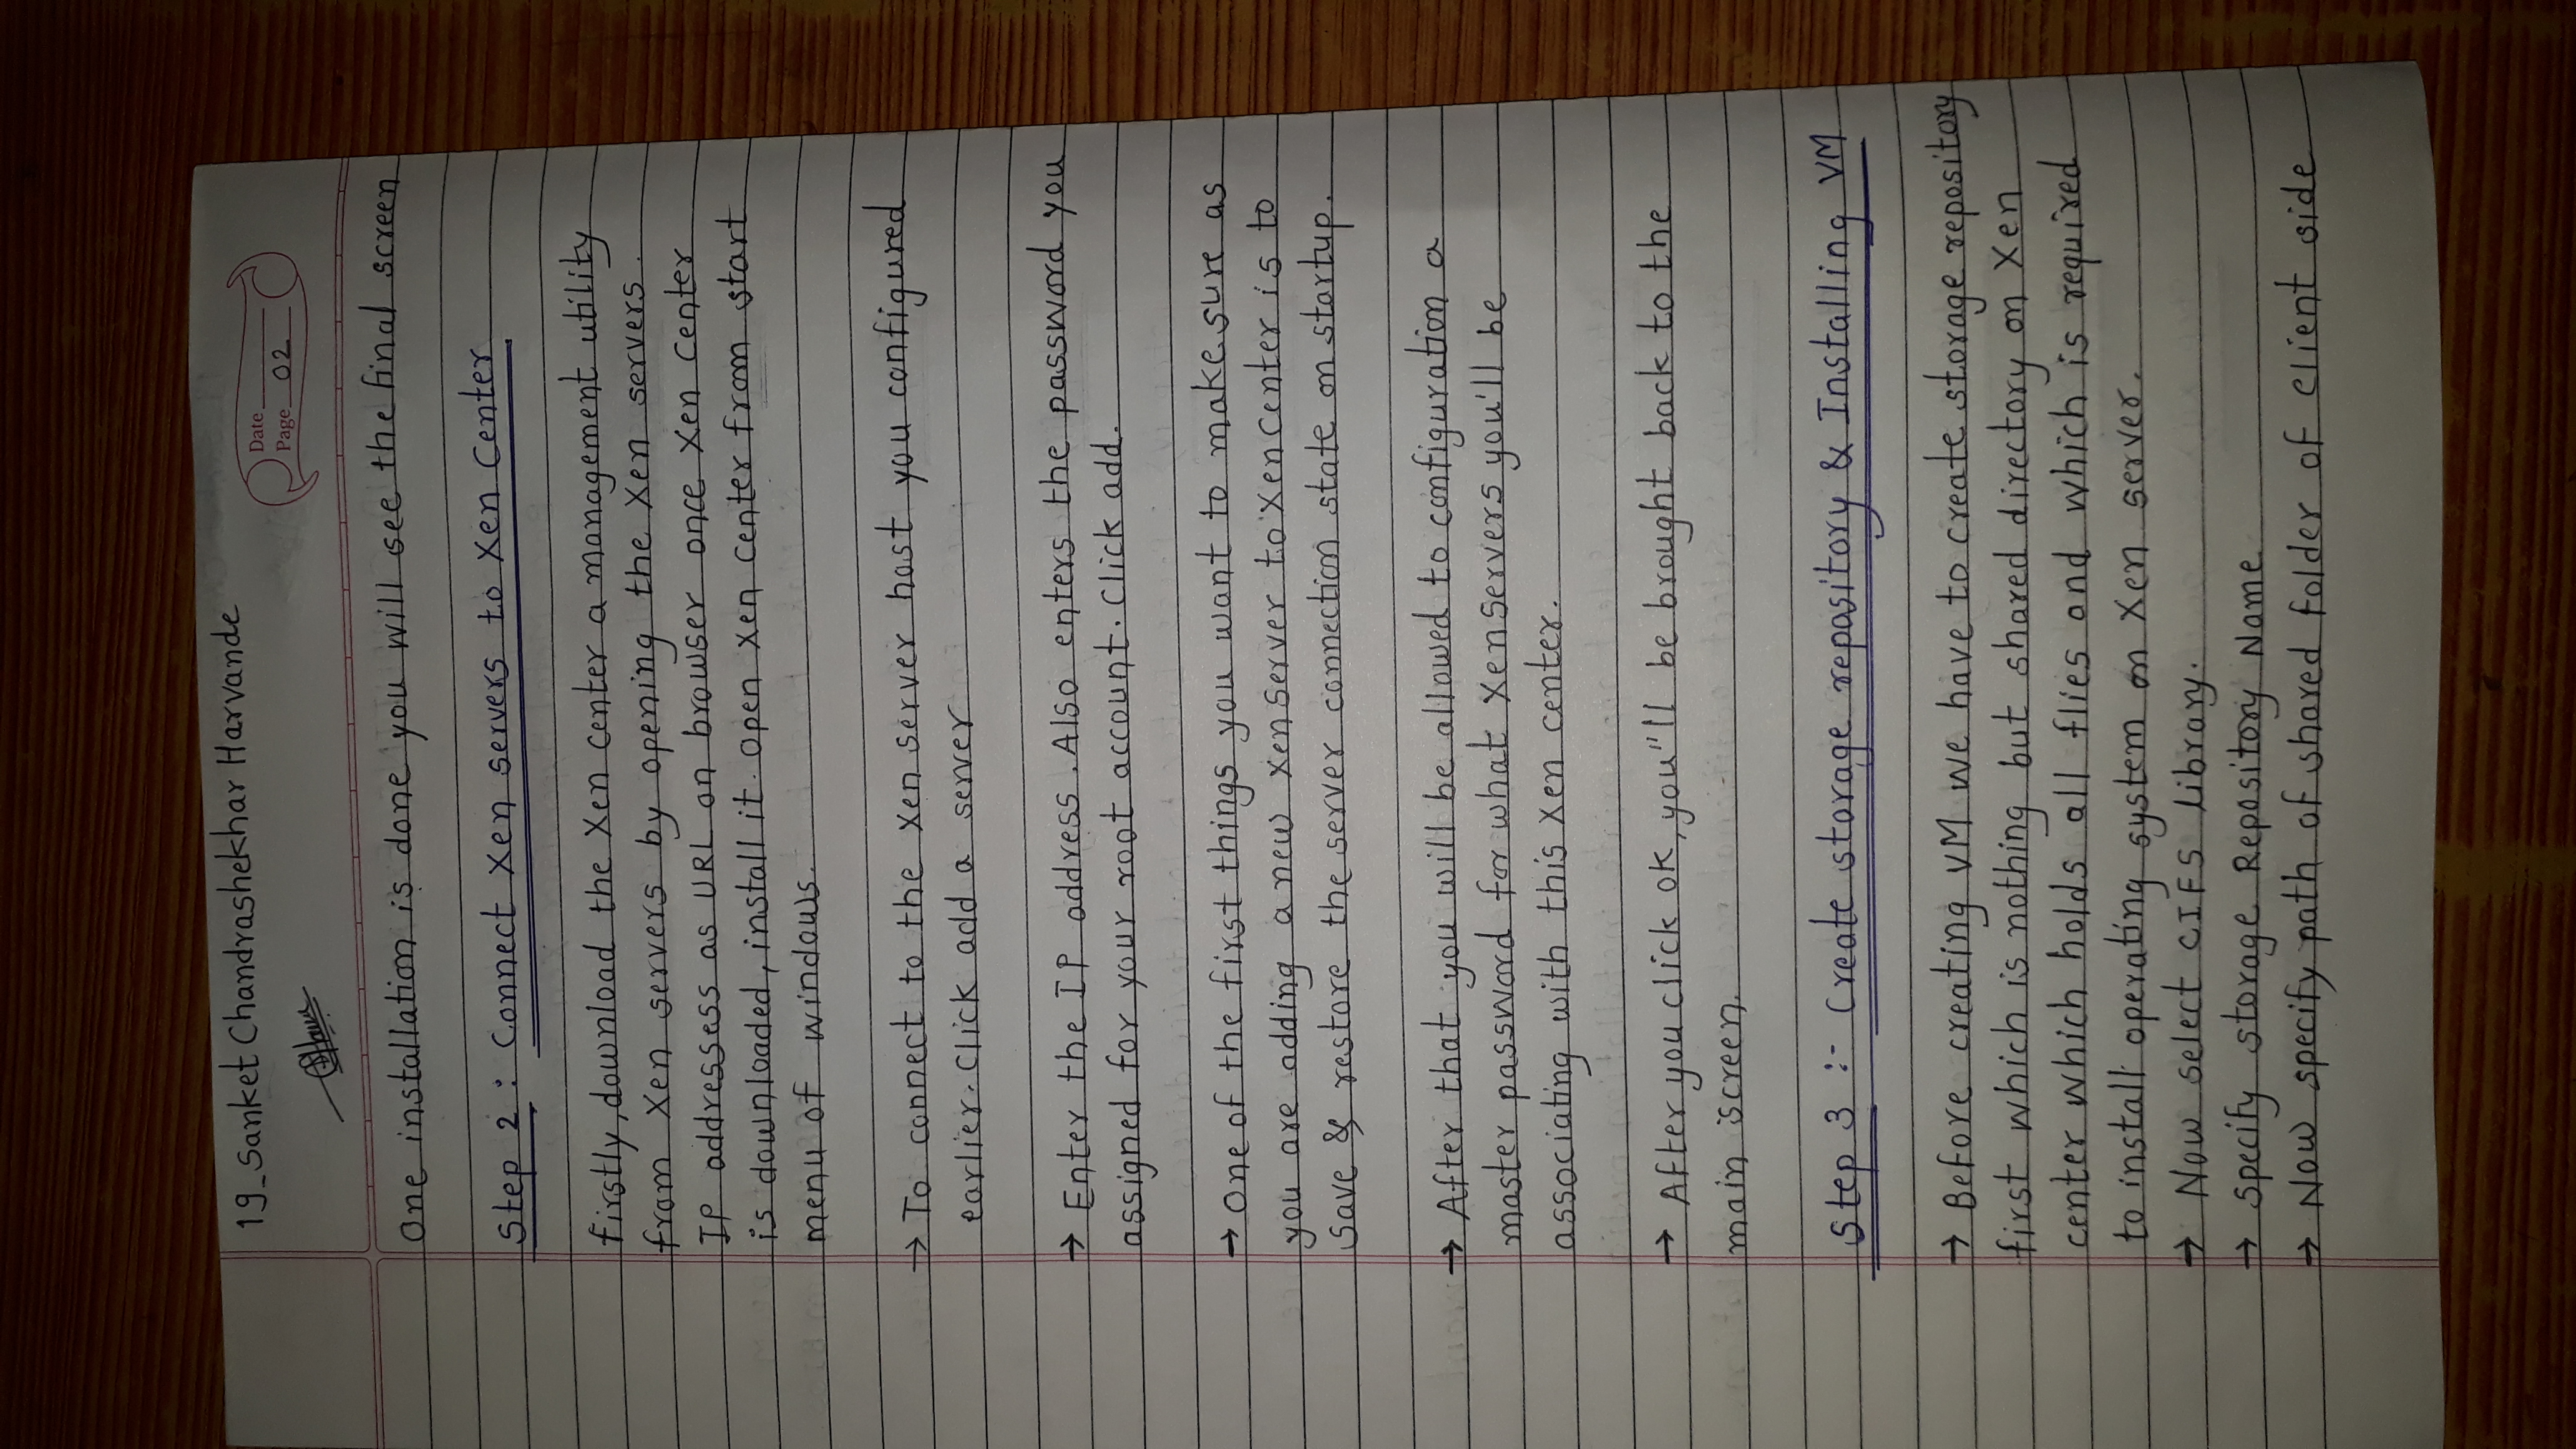 19_Sanket Chandrashekhar Harvande
Date
Page 02
One installation is done you will see the final screen
Step 2 : Connect Xen servers to Xen Center
firstly, download the Xen center a management utility
from Xen servers by opening the Xen servers.
IP addressess as URL on browser once Xen Center
is downloaded, install it. Open Xen Center from start
menu of windows.
→ To connect to the Xen server host you configured
earlier. Click add a server
→ Enter the IP address. Also enters the password you
assigned for your root account. Click add.
→ One of the first things you want to make sure as
you are adding a new XenServer to Xencenter is to
save & restore the server connection state on startup.
→ After that you will be allowed to configuration a
master password for what XenServers you'll be
associating with this Xen center.
→ After you click ok, you"ll be brought back to the
main screen.
Step 3 :- Create storage repository & Installing VM
→ Before creating VM we have to create storage repository
first which is nothing but shared directory on Xen
center which holds all flies and which is required
to install operating system on Xen server.
→ Now select CIFS library.
→ Specify storage Repository Name
→ Now specify path of shared folder of client side